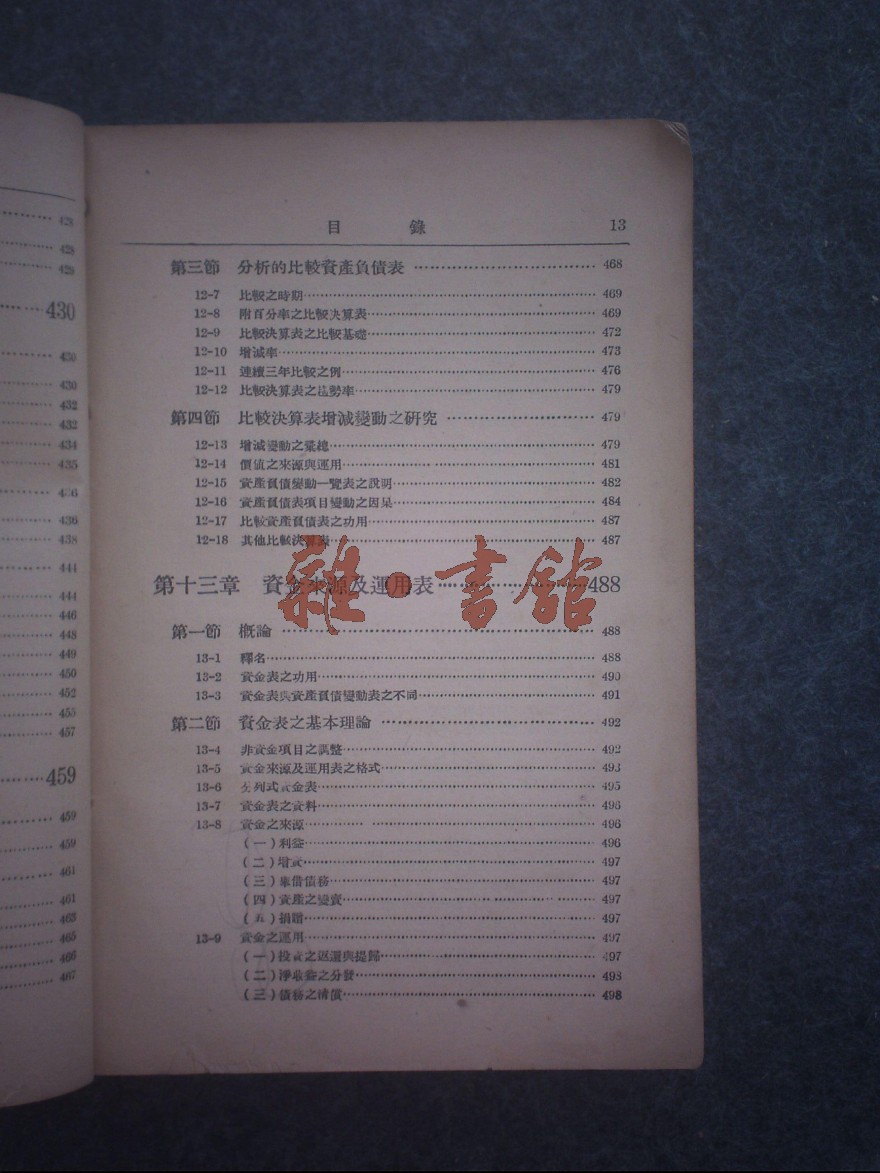 428
429
429
430
430
430
432
432
434
435
436
436
438
444
444
446
448
449
450
452
455
457
459
459
459
461
461
463
465
466
467
目錄 13
第三節 分析的比較資產負債表 468
12-7 比較之時期 469
12-8 附百分率之比較決算表 469
12-9 比較決算表之比較基礎 472
12-10 增減率 473
12-11 連續三年比較之例 476
12-12 比較決算表之趨勢率 479
第四節 比較決算表增減變動之研究 479
12-13 增減變動之彙總 479
12-14 價值之來源與運用 481
12-15 資產負債變動一覽表之說明 482
12-16 資產負債表項目變動之因果 484
12-17 比較資產負債表之功用 487
12-18 其他比較決算表 487
第十三章 資金來源及運用表 488
雜·書館
第一節 概論 488
13-1 釋名 488
13-2 資金表之功用 490
13-3 資金表與資產負債變動表之不同 491
第二節 資金表之基本理論 492
13-4 非資金項目之調整 492
13-5 資金來源及運用表之格式 493
13-6 列式資金表 495
13-7 資金表之資料 496
13-8 資金之來源 496
(一)利益 496
(二)增資 497
(三)舉借債務 497
(四)資產之變賣 497
(五)捐贈 497
13-9 資金之運用 497
(一)投資之返還與提歸 497
(二)淨收益之分發 498
(三)債務之清償 498